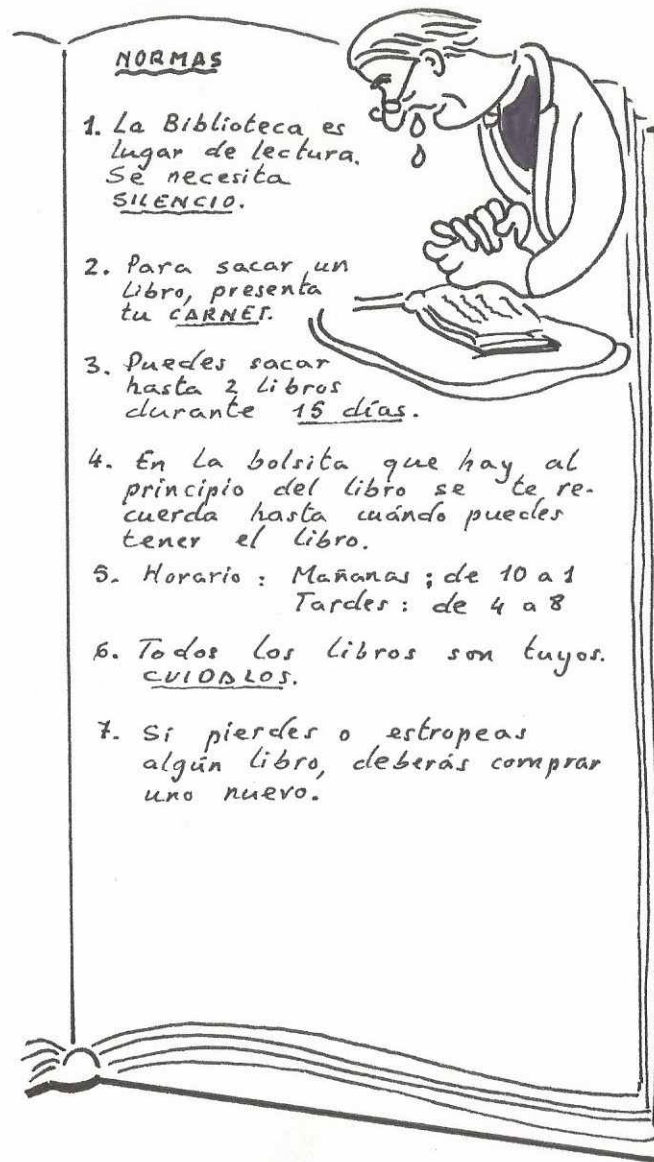 NORMAS
1. La Biblioteca es
lugar de lectura.
Se necesita
SILENCIO.
2. Para sacar un
libro, presenta
tu CARNET.
3. Puedes sacar
hasta 2 libros
durante 15 días.
4. En la bolsita que hay al
principio del libro se te re-
cuerda hasta cuándo puedes
tener el libro.
5. Horario: Mañanas; de 10 a 1
Tardes: de 4 a 8
6. Todos los libros son tuyos.
CUIDALOS.
7. Si pierdes o estropeas
algún libro, deberás comprar
uno nuevo.